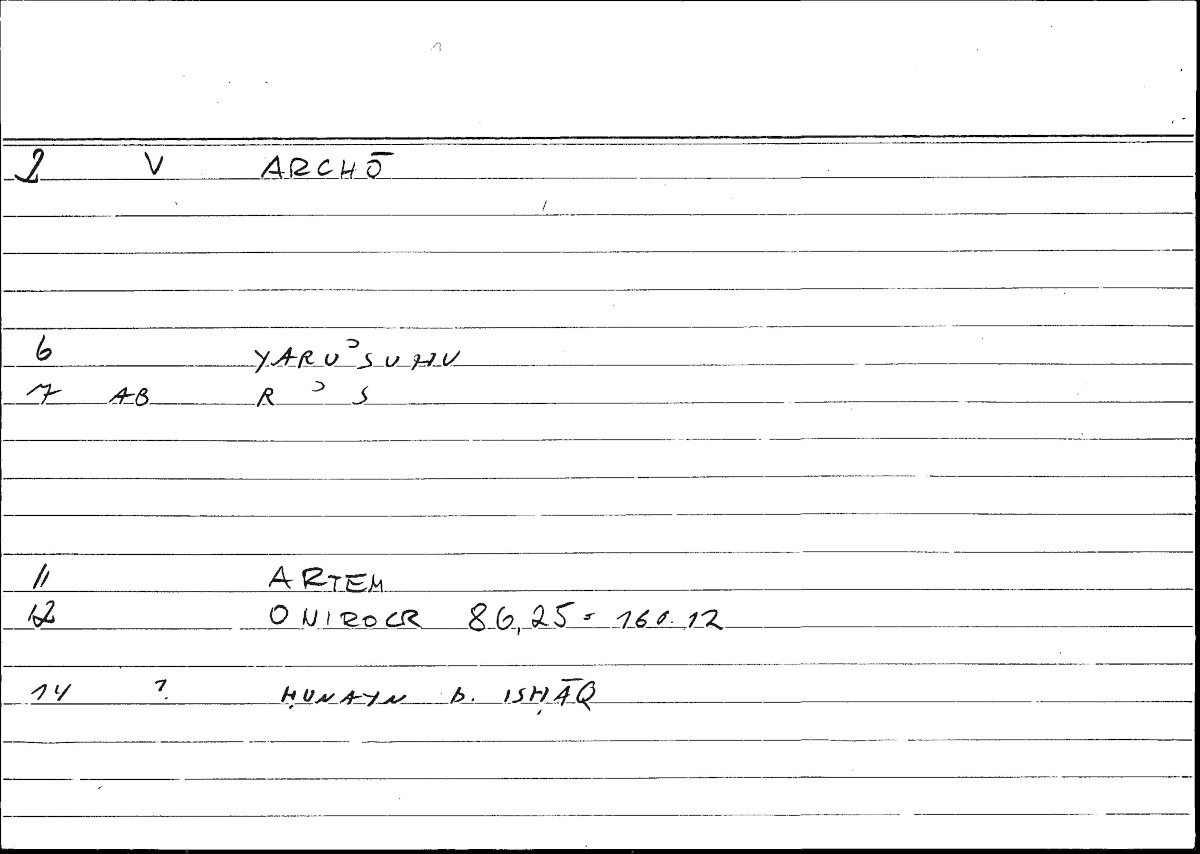 2 V ARCHŌ
6 YARUʾSUHU
7 AB R ʾ S
11 ARTEM
12 ONIROCR 86,25 = 160.12
14 ? ḤUNAYN b. ISḤĀQ